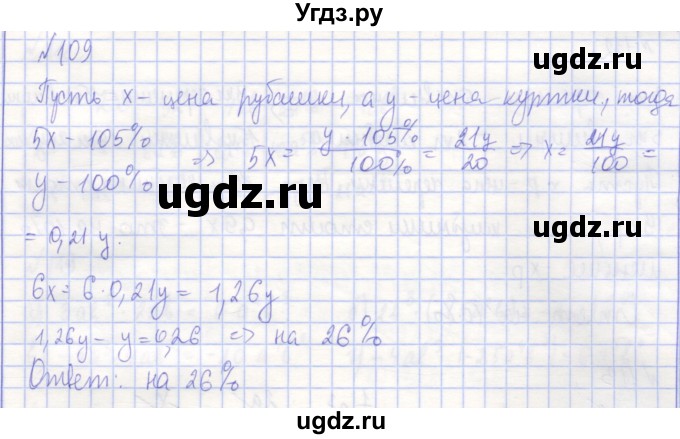 Угдз.ру
№109
ugdz.ru
Пусть x - цена рубашки, а y - цена куртки, тогда
5x - 105%
y - 100% => 5x = y · 105% / 100% = 21y / 20 => x = 21y / 100 =
ugdz.ru
ugdz.ru
= 0,21 y.
ugdz.ru
6x = 6 · 0,21y = 1,26y
ugdz.ru
1,26y - y = 0,26 => на 26%
Ответ: на 26%
ugdz.ru
ugdz.ru